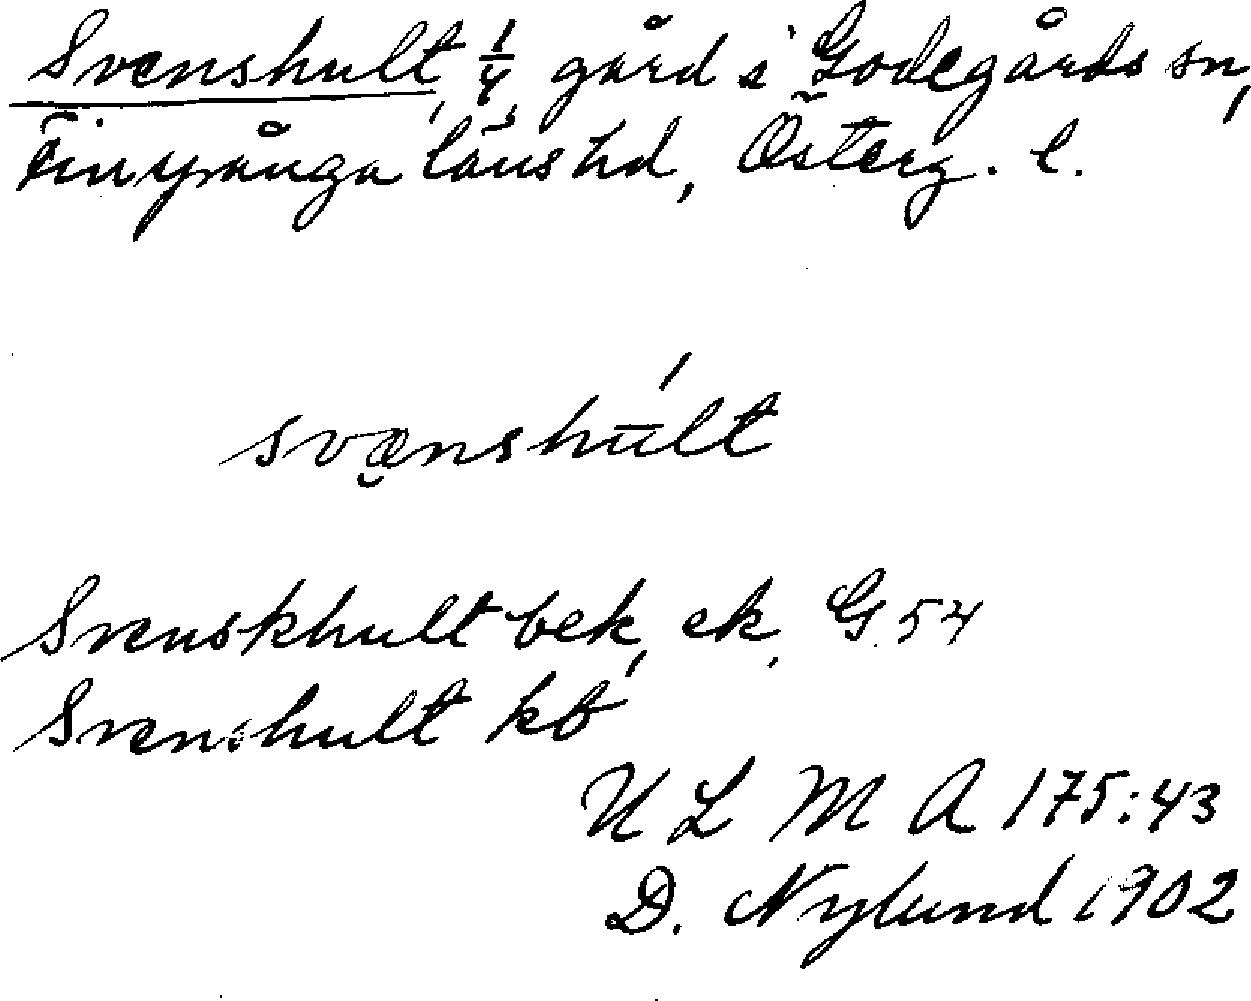 Svenshult, 1/4 gård i Godegårds sn,
Finspånga läns hd, Österg. l.
svænshúlt
Svenskhult bek, ek. G 54
Svenshult kb
U L M A 175:43
D. Nylund 1902